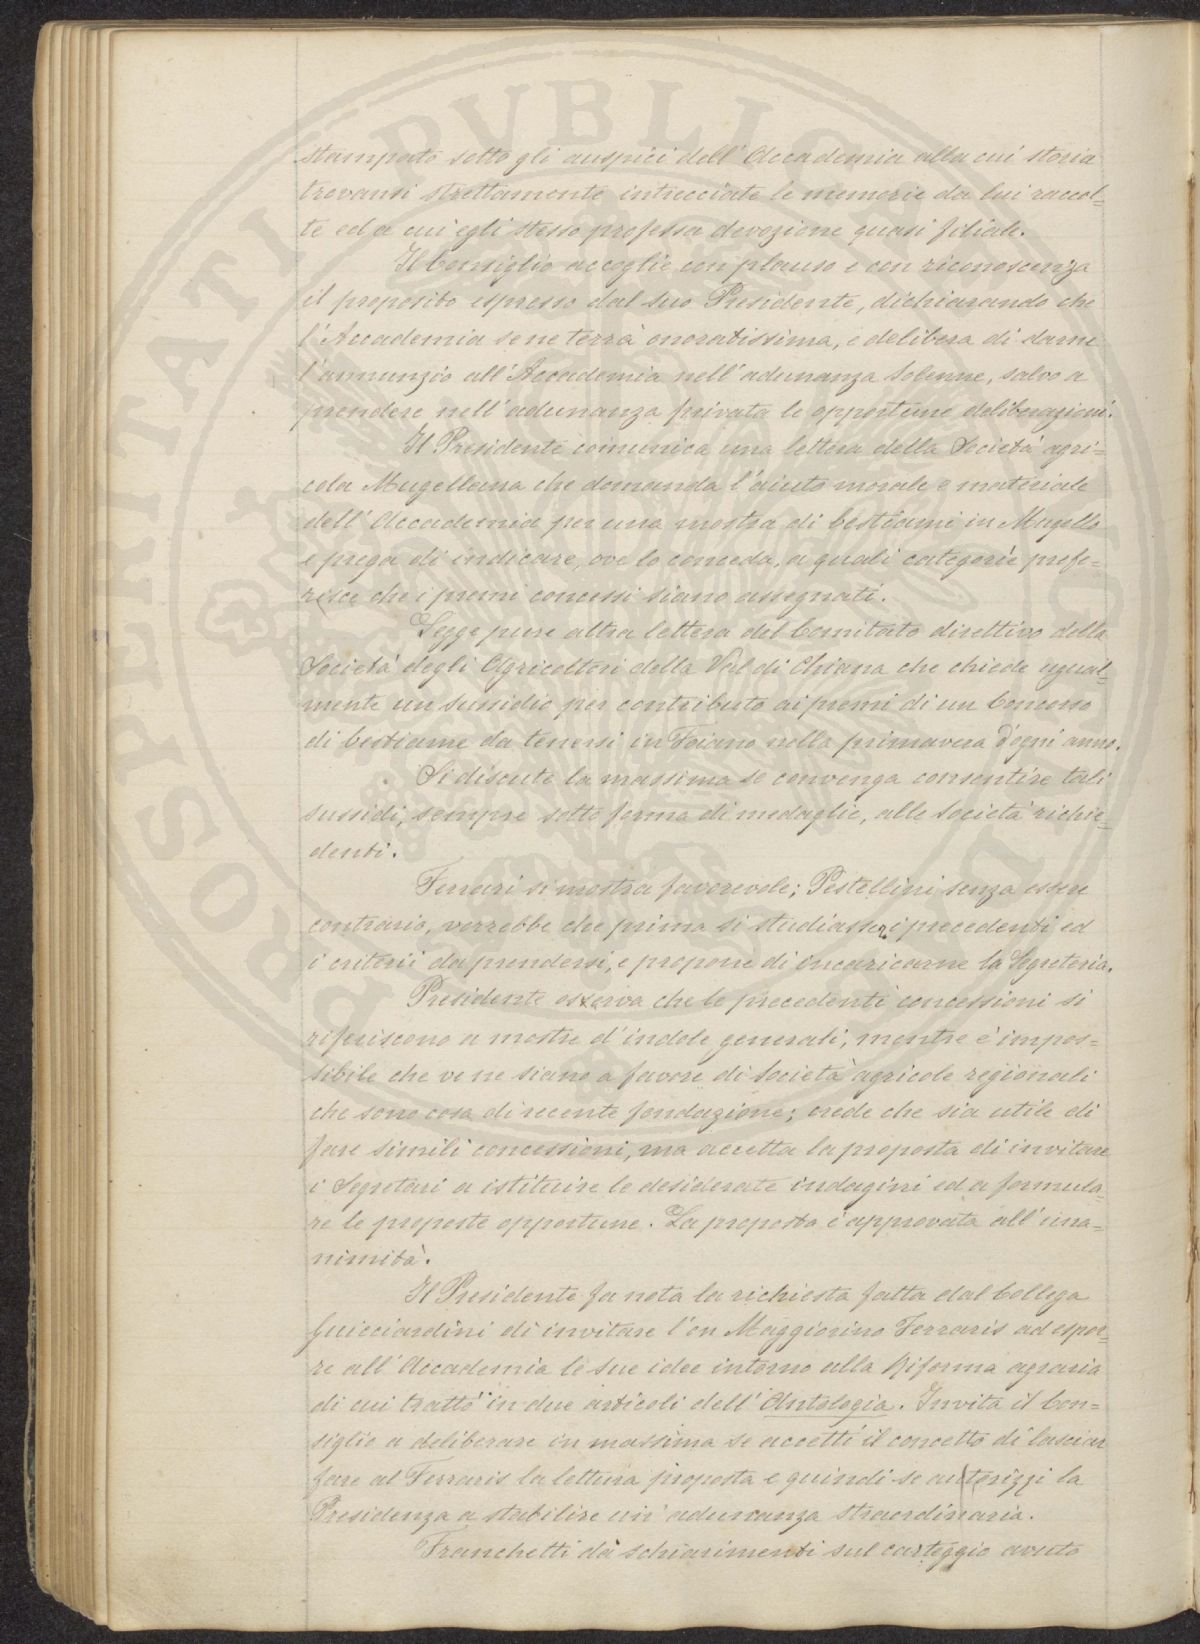 stampato sotto gli auspici dell'Accademia alla cui storia
trovansi strettamente intrecciate le memorie da lui raccol=
te ed a cui egli stesso professa devozione quasi filiale.
Il Consiglio accoglie con plauso e con riconoscenza
il proposito espresso dal suo Presidente, dichiarando che
l'Accademia se ne terrà onoratissima, e delibera di darne
l'annunzio all'Accademia nell'adunanza solenne, salvo a
prendere nell'adunanza privata le opportune deliberazioni.
Il Presidente comunica una lettera della Società agri=
cola Mugellana che domanda l'aiuto morale e materiale
dell'Accademia per una mostra di bestiami in Mugello
e prega di indicare, ove lo conceda, a quali categorie prefe=
risce che i premi concessi siano assegnati.
Legge pure altra lettera del Comitato direttivo della
Società degli Agricoltori della Val di Chiana che chiede egual=
mente un sussidio per contributo ai premi di un Concorso
di bestiame da tenersi in Foiano nella primavera d'ogni anno.
Si discute la massima se convenga consentire tali
sussidi, sempre sotto forma di medaglie, alle Società richie=
denti.
Ferrari si mostra favorevole; Pestellini senza essere
contrario, vorrebbe che prima si studiassero i precedenti ed
i criterii da prendersi, e propone di incaricarne la Segreteria.
Presidente osserva che le precedenti concessioni si
riferiscono a mostre d'indole generali, mentre è impos=
sibile che ve ne siano a favore di Società agricole regionali
che sono cosa di recente fondazione; crede che sia utile di
fare simili concessioni, ma accetta la proposta di invitare
i Segretari a istituire le desiderate indagini ed a formula=
re le proposte opportune. La proposta è approvata all'una=
nimità.
Il Presidente fa nota la richiesta fatta dal Collega
Guicciardini di invitare l'on Maggiorino Ferraris ad espor=
re all'Accademia le sue idee intorno alla Riforma agraria
di cui trattò in due articoli dell'Antologia. Invita il Con=
siglio a deliberare in massima se accetti il concetto di lasciar
fare al Ferraris la lettura proposta e quindi se autorizzi la
Presidenza a stabilire un'adunanza straordinaria.
Franchetti dà schiarimenti sul carteggio avuto
PROSPERITATI PVBLICAE